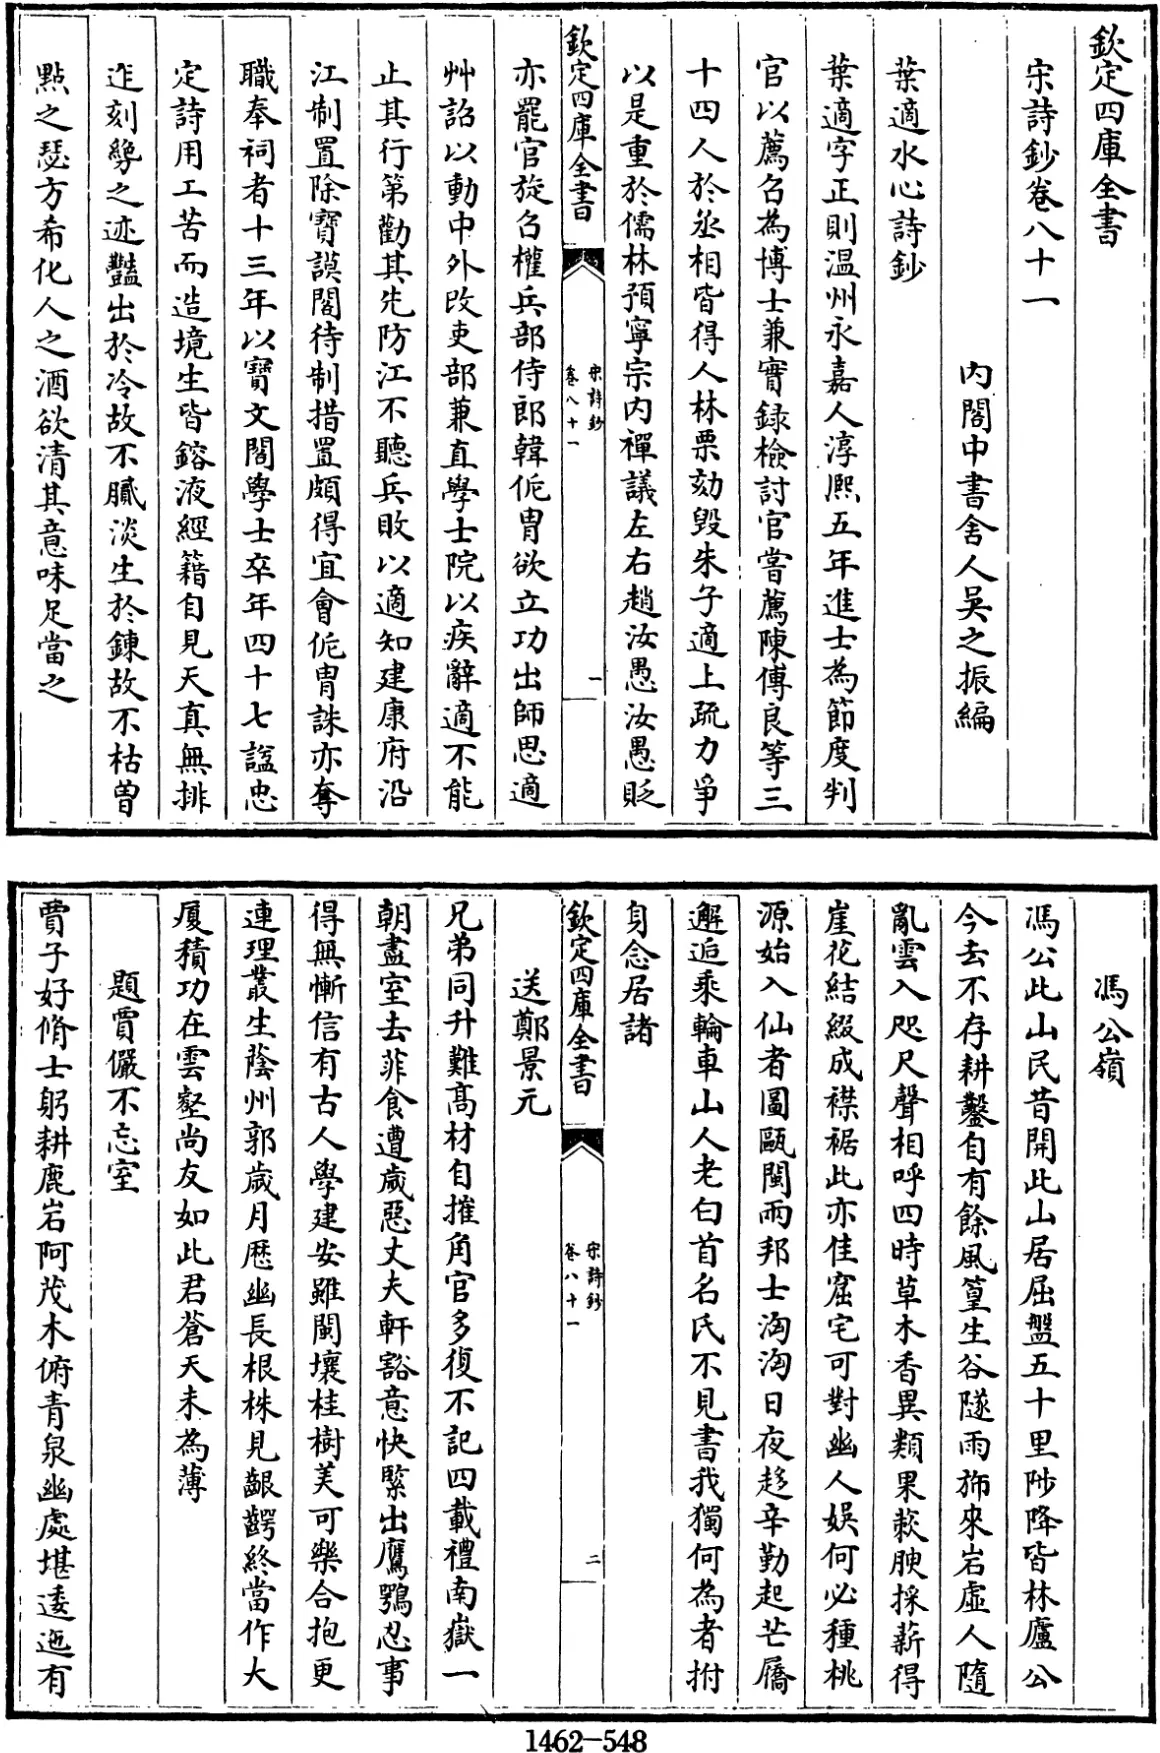 欽定四庫全書
宋詩鈔卷八十一
內閣中書舍人吳之振編
葉適水心詩鈔
葉適字正則温州永嘉人淳熙五年進士為節度判
官以薦召為博士兼實録檢討官嘗薦陳傅良等三
十四人於丞相皆得人林栗劾毀朱子適上疏力爭
以是重於儒林預寧宗内禪議左右趙汝愚汝愚貶
欽定四庫全書
宋詩鈔
卷八十一
一
亦罷官旋召權兵部侍郎韓侂胄欲立功出師思適
艸詔以動中外改吏部兼直學士院以疾辭適不能
止其行第勸其先防江不聽兵敗以適知建康府沿
江制置除寶謨閣待制措置頗得宜會侂胄誅亦奪
職奉祠者十三年以寶文閣學士卒年四十七諡忠
定詩用工苦而造境生皆鎔液經籍自見天真無排
迮刻雕之迹豔出於冷故不膩淡生於鍊故不枯曾
點之瑟方希化人之酒欲清其意味足當之
馮公嶺
馮公此山民昔開此山居屈盤五十里陟降皆林廬公
今去不存耕鑿自有餘風篁生谷隧雨旆來岩虛人隨
亂雲入咫尺聲相呼四時草木香異類果蓛腴採薪得
崖花結綴成襟裾此亦佳窟宅可對幽人娱何必種桃
源始入仙者圖甌閩兩邦士洶洶日夜趍辛勤起芒屩
邂逅乘輪車山人老白首名氏不見書我獨何為者拊
身念居諸
欽定四庫全書
宋詩鈔
卷八十一
二
送鄭景元
兄弟同升難高材自摧角官多復不記四載禮南嶽一
朝盡室去菲食遭歲惡丈夫軒豁意快緊出鷹鶚忍事
得無慚信有古人學建安雖閩壤桂樹美可樂合抱更
連理叢生蔭州郭歲月歴幽長根株見齦齶終當作大
厦積功在雲壑尚友如此君蒼天未為薄
題賈儼不忘室
賈子好脩士躬耕鹿岩阿茂木俯青泉幽處堪逶迤有
1462-548